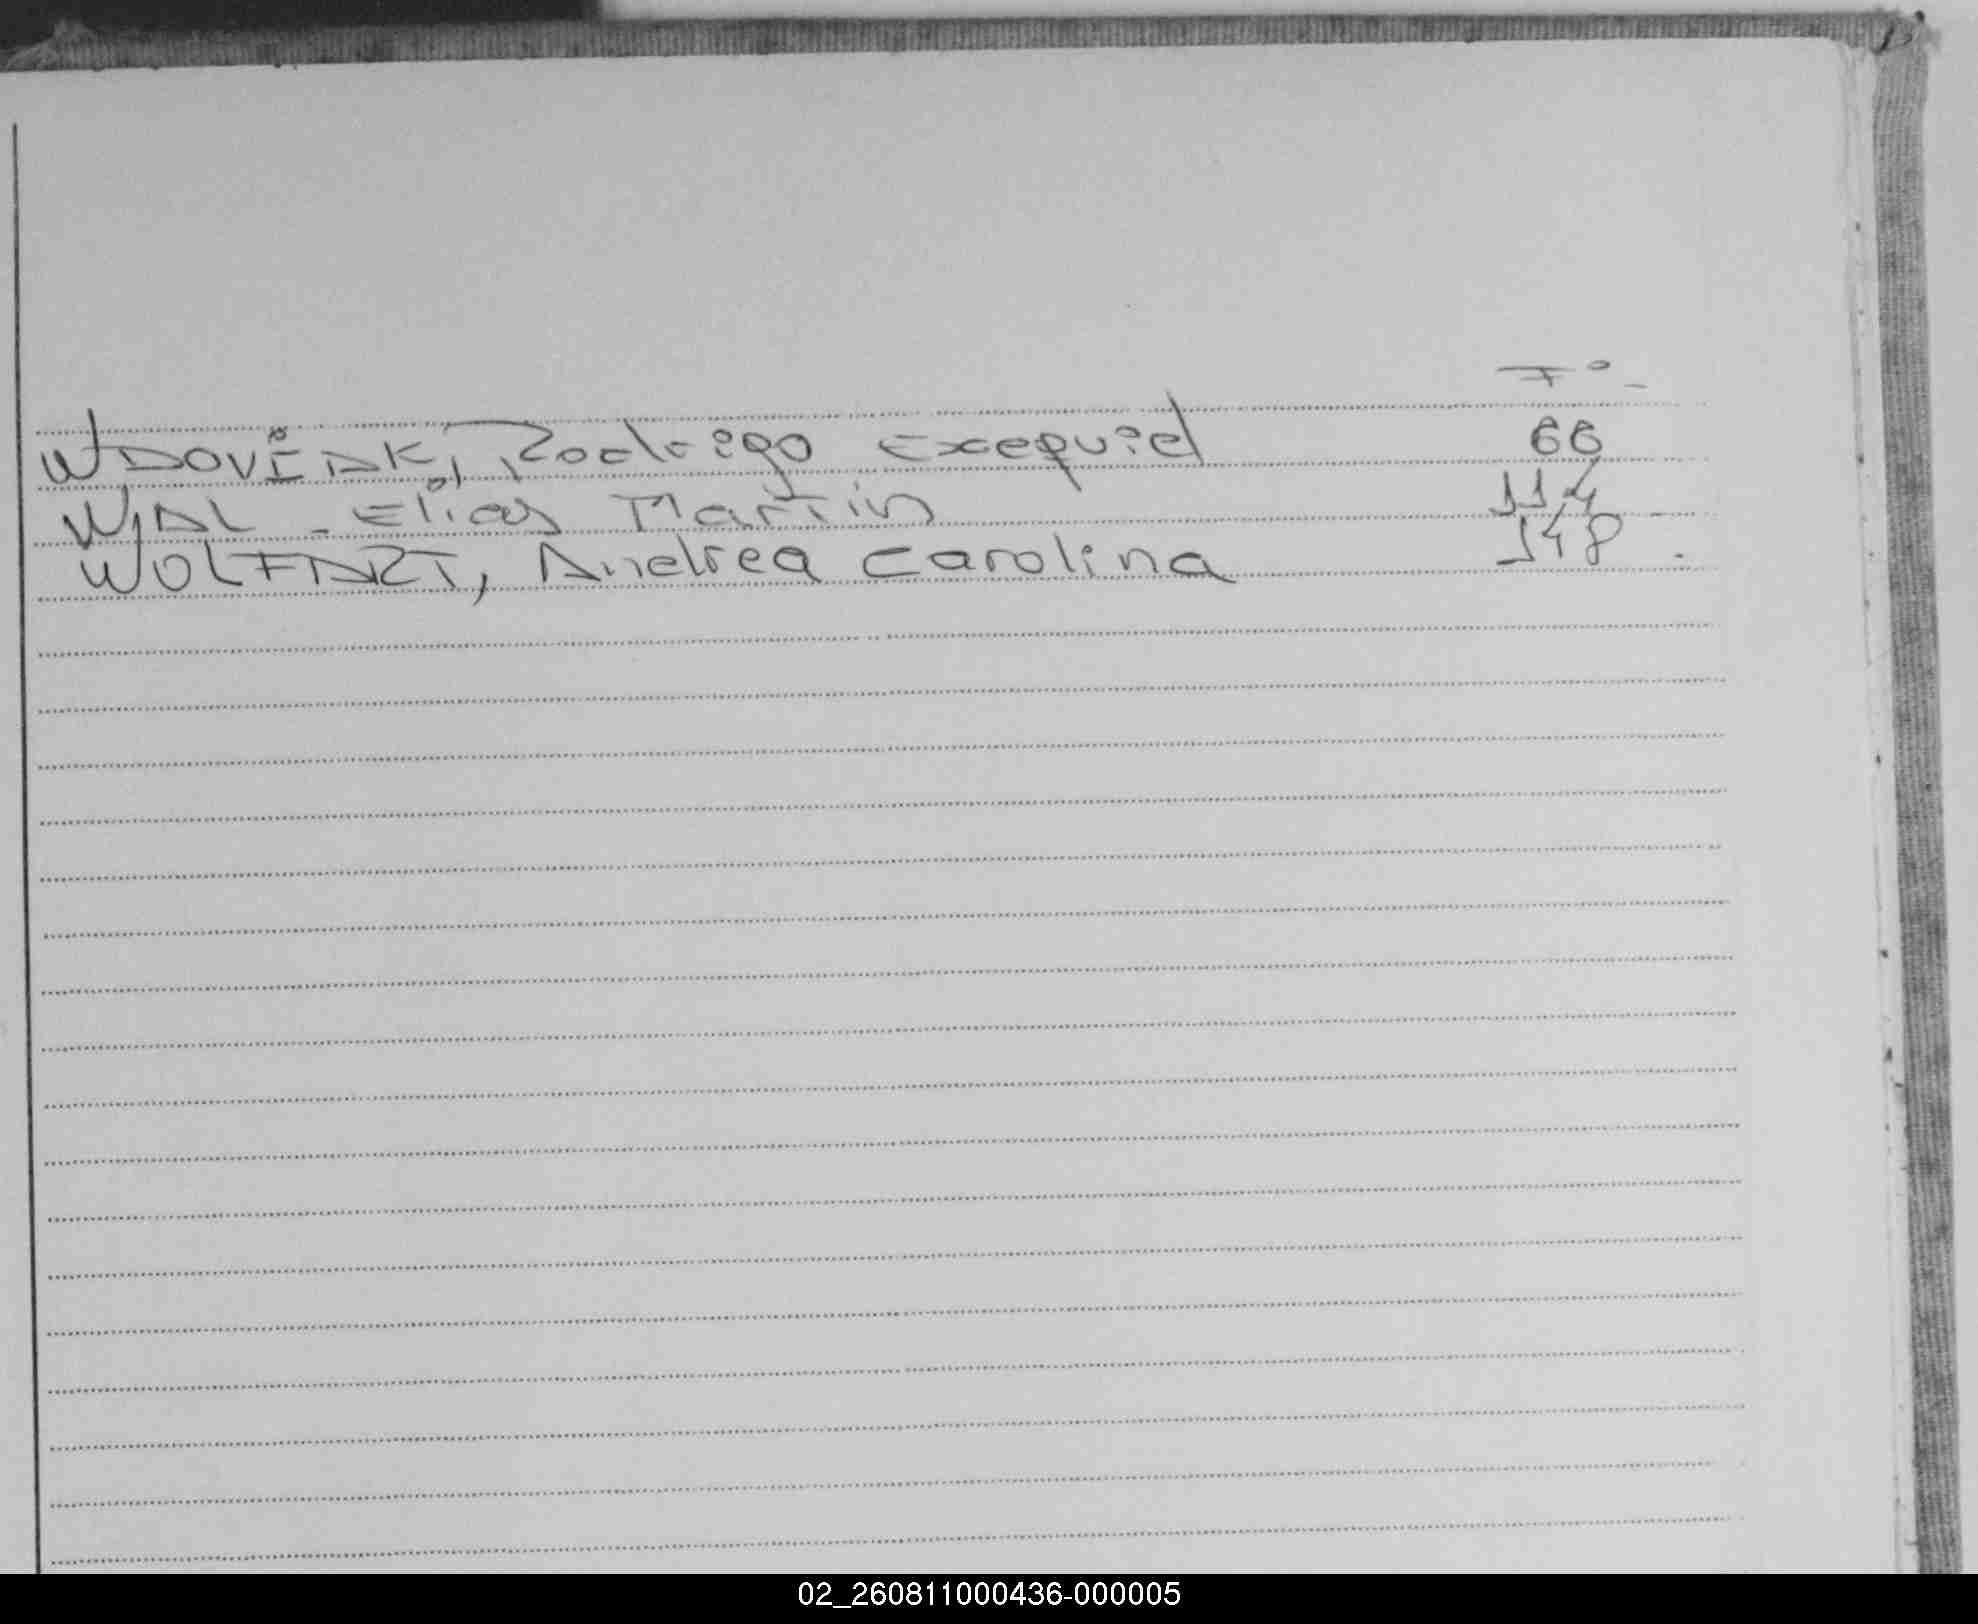 F°-
WDOVIAK, Rodrigo Exequiel 66
WIAL - Elías Martín 114 -
WOLFART, Andrea Carolina 148 .
02_260811000436-000005